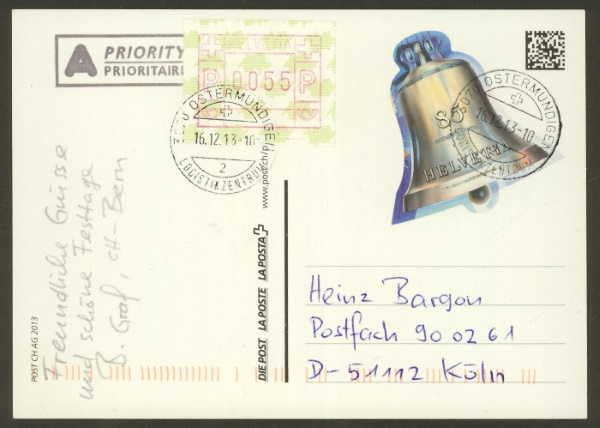 A PRIORITY
PRIORITAIRE
HELVETIA
P 0055 P
3070 OSTERMUNDIGEN
16.12.13-10
2
LOGISTIKZENTRUM
www.post.ch/p
85
HELVETIA
3070 OSTERMUNDIGEN
16.12.13-10
Freundliche Grüsse
und schöne Festtage
B. Graf, CH-Bern
POST CH AG 2013
DIE POST LA POSTE LA POSTA
Heinz Bargon
Postfach 90 02 61
D-51112 Köln